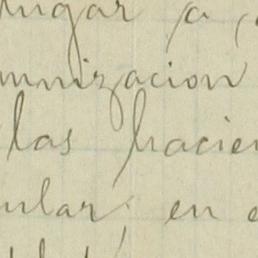 lugar a
mnizacion
las hacien
ular, en e